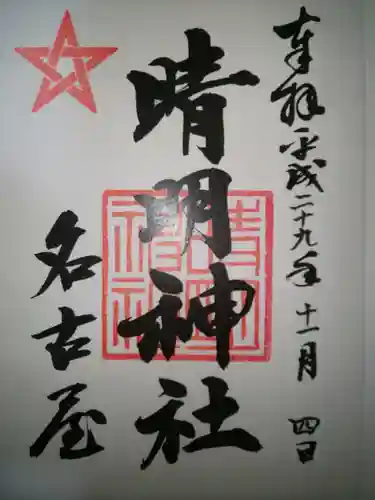 奉拝 平成二十九年 十一月 四日
晴明神社
名古屋
晴明
神社